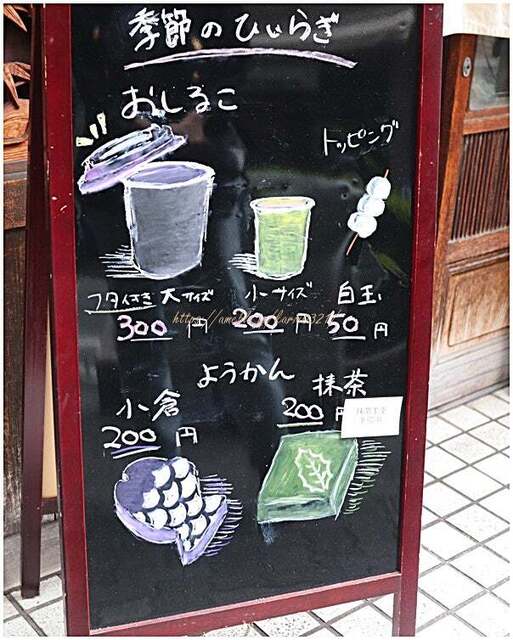 季節のひいらぎ
おしるこ
トッピング
フタ付き大サイズ
300円
小サイズ
200円
白玉
50円
ようかん
小倉
200円
抹茶
200円